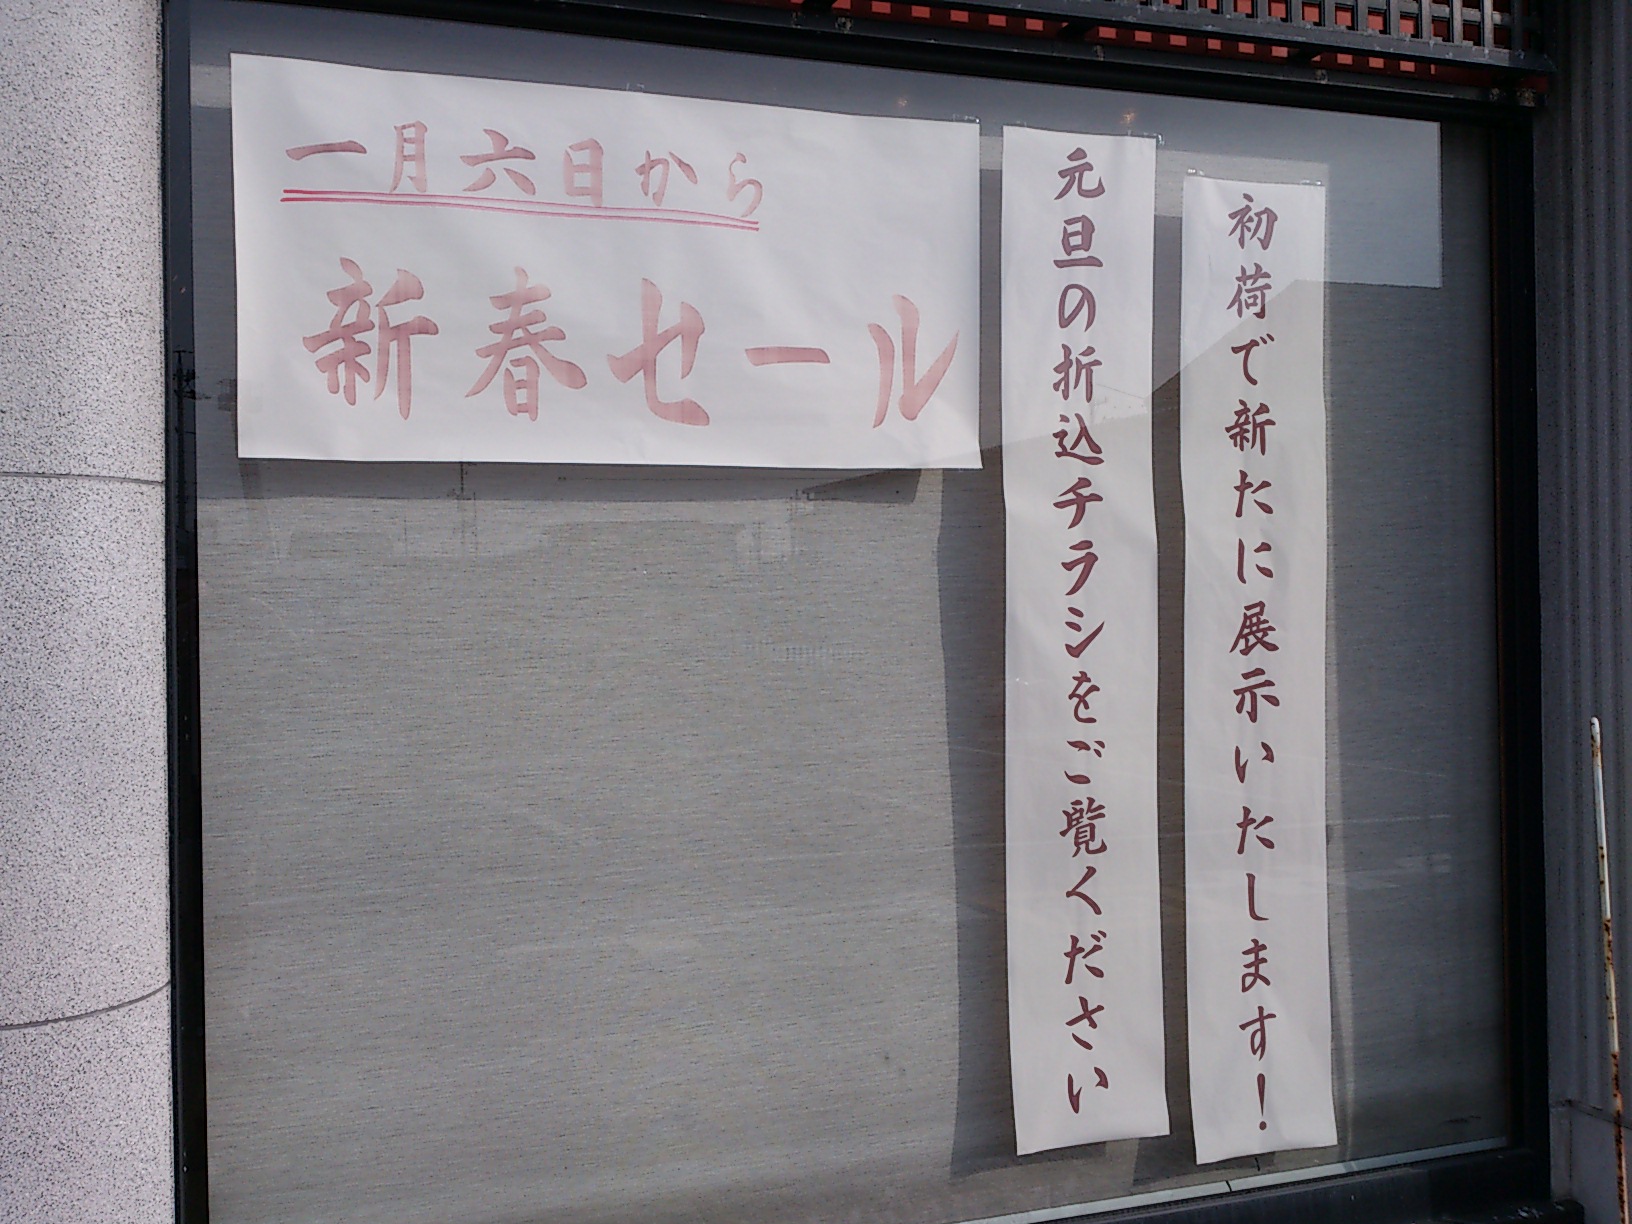 一月六日から
新春セール
初荷で新たに展示いたします!
元旦の折込チラシをご覧ください